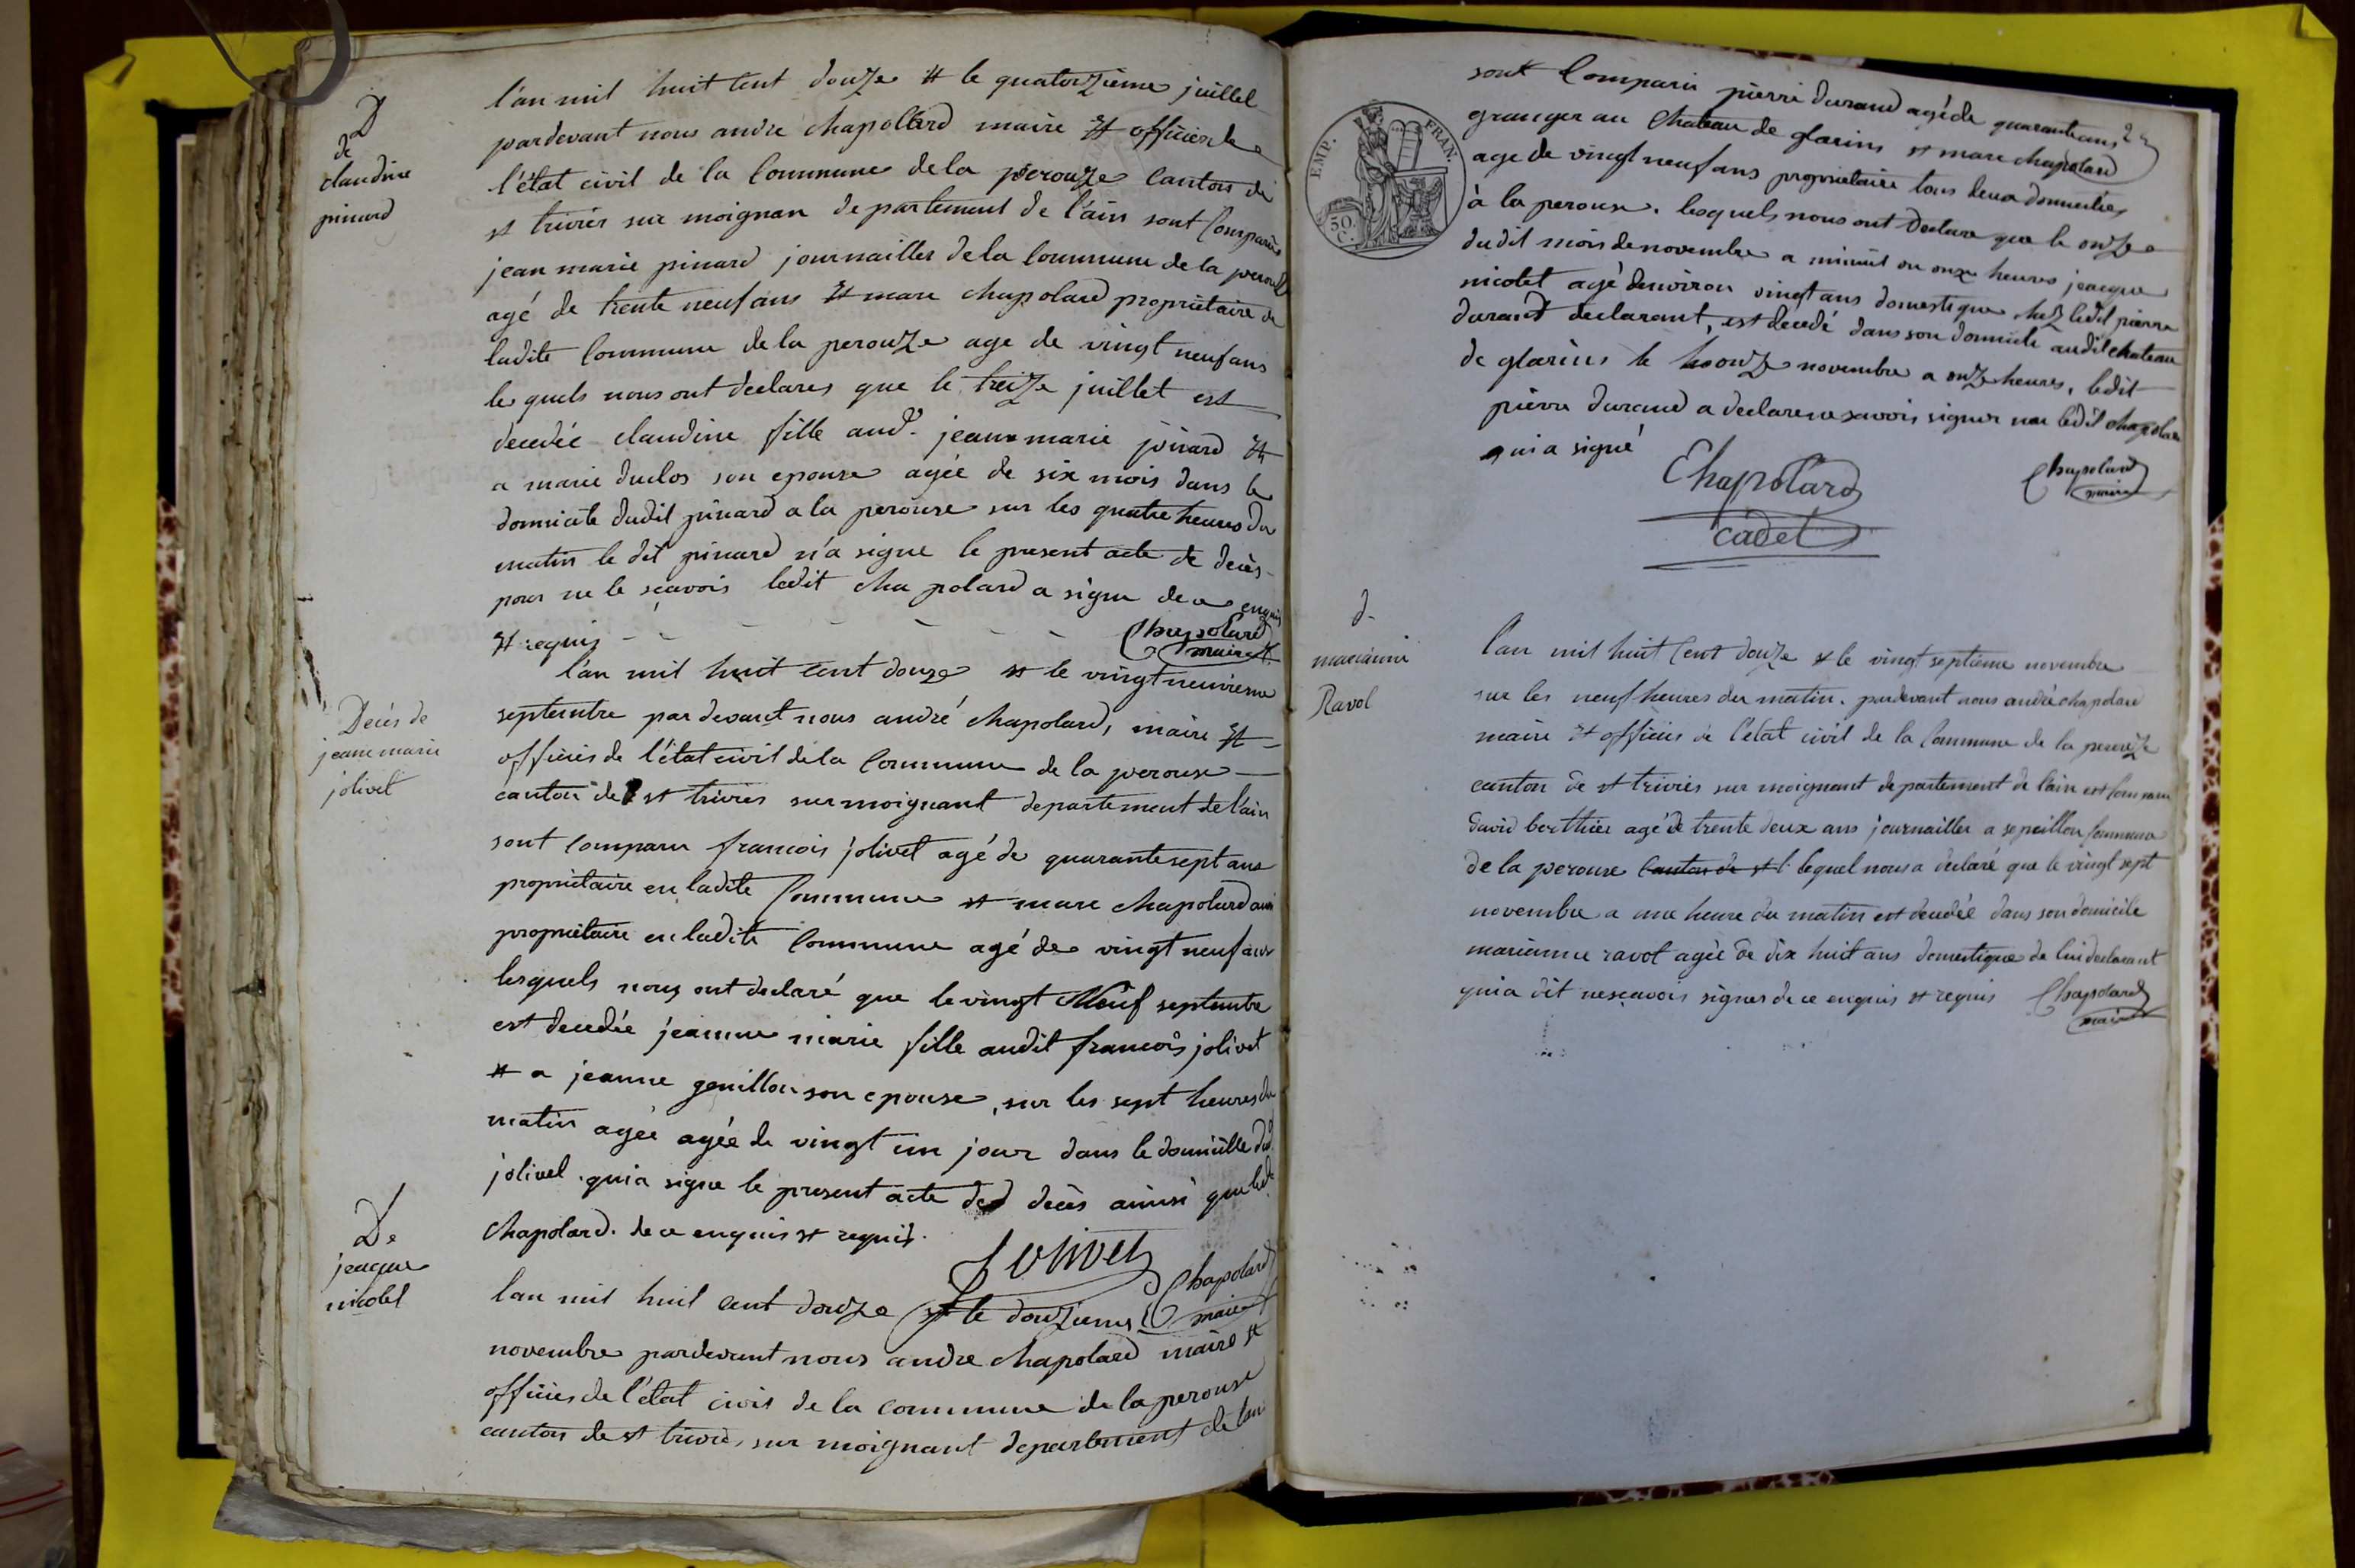 D
de
claudine
pinard
l'an mil huit cent douze et le quatorzieme juillet
pardevant nous andre chapollard maire et officier de
l'état civil de la Commune de la pérouze Canton de
st trivier sur moignan departement de l'ain sont Comparus
jean marie pinard journailler de la Commune de la perouze
agé de trente neuf ans et marc chapolard propriétaire de
ladite Commune de la perouze age de vingt neuf ans
lesquels nous ont declares que le treize juillet est
decedée claudine fille aud. jean marie pinard et
a marie duclos son epouse agée de six mois dans le
domicile dudit pinard a la perouse sur les quatre heures du
matin le dit pinard n'a signe le present acte de decès
pour ne le sçavoir ledit chapolard a signe de ce enquis
et requis - - - - - - Chapolard
maire
Decès de
jeanne marie
jolivet
l'an mil huit cent douze et le vingt neuvieme
septembre par devant nous andré chapolard, maire et
officier de l'état civil de la Commune de la perouse
canton de st trivier sur moignant departement de l'ain
sont comparu francois jolivet agé de quarante sept ans
propriétaire en ladite Commune et marc chapolard aussi
propriétaire en ladite Commune agé de vingt neuf ans
lesquels nous ont declaré que le vingt Neuf septembre
est decedée jeanne marie fille audit francois jolivet
et a jeanne genillon son epouse, sur les sept heures du
matin agée agée de vingt un jour dans le domicille dud.
jolivet. qui a signe le present acte de decès ainsi que led.
chapolard. de ce enquis et requis.
Jolivet
Chapolard
maire
De
jeacque
nicolet
l'an mil huit cent douze et le douzieme
novembre pardevant nous andre chapolard maire et
officier de l'état civis de la commune de la perouse
canton de st trivier sur moignant departement de l'ain
EMP. FRAN.
50
C.
sont Comparu pierre durand agé de quarante ans
granger au Chateau de glarins et marc chapolard
age de vingt neuf ans propriétaire tous deux domiciliés
à la perouse. lesquels nous ont declare que le onze
dudit mois de novembre a minuit ou onze heures jeacque
nicolet agé denviron vingt ans domestique chez ledit pierre
durand declarant, est decedé dans son domicile audit chateau
de glarins le onze novembre a onze heures, ledit
pierre durand a declare ne savoir signer non ledit chapolard
qui a signé
Chapolard
cadet
Chapolard
maire
d.
marianne
Ravol
l'an mil huit Cent douze et le vingt septieme novembre
sur les neuf heures du matin. pardevant nous andré chapolard
maire et officier de l'état civil de la Commune de la perouze
canton de st trivier sur moignant departement de l'ain est comparu
david berthier agé de trente deux ans journailler a sepeillon Commune
de la perouse Canton de st t lequel nous a declaré que le vingt sept
novembre a une heure du matin est decedée dans son domicile
marianne ravol agée de dix huit ans domestique de lui declarant
qui a dit ne sçavoir signer de ce enquis et requis Chapolard
maire